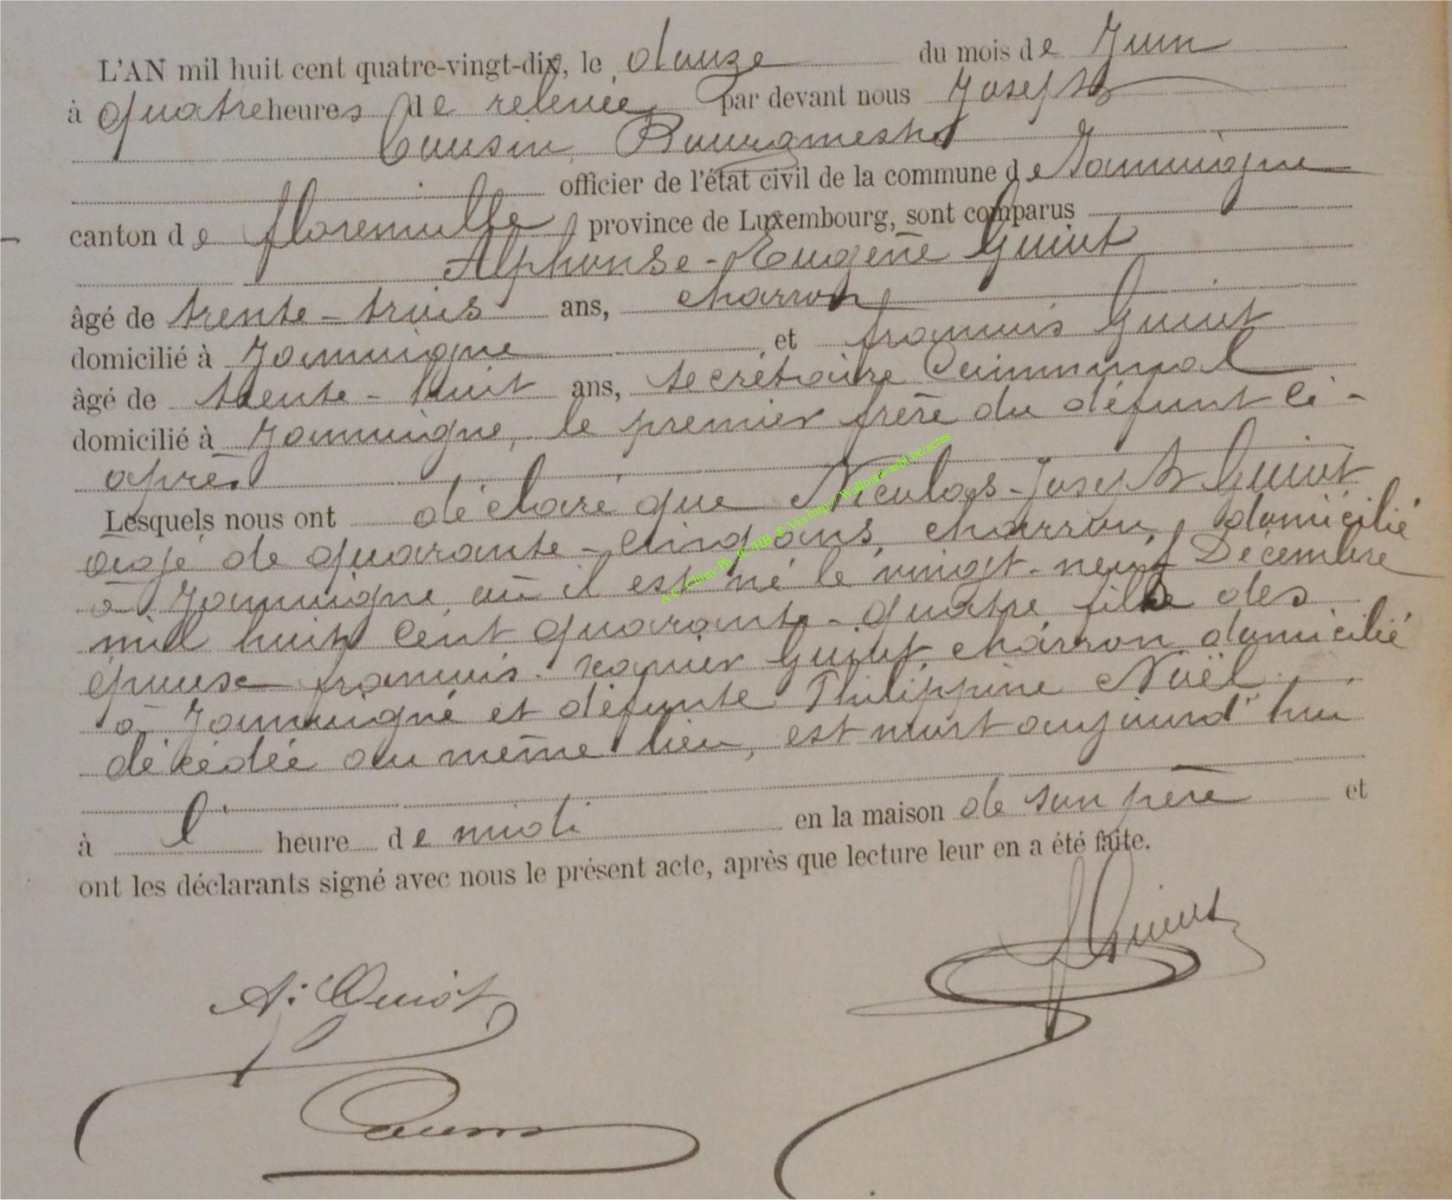 L'AN mil huit cent quatre-vingt-dix, le douze du mois de Juin
à quatre heures de relevée, par devant nous Joseph
Cousin, Bourgmestre
officier de l'état civil de la commune de Jamoigne
canton de florenville, province de Luxembourg, sont comparus
Alphonse-Eugène Guiot
âgé de trente-trois ans, charron
domicilié à Jamoigne et françois Guiot
âgé de trente-huit ans, secrétaire Communal
domicilié à Jamoigne, le premier frère du défunt ci-
après
Lesquels nous ont déclaré que Nicolas-Joseph Guiot
âgé de quarante-cinq ans, charron, domicilié
à Jamoigne, où il est né le vingt-neuf Décembre
mil huit cent quarante-quatre fils des
époux françois-xavier Guiot, charron domicilié
à Jamoigne et défunte Philippine Noël
décédée au même lieu, est mort aujourd'hui
à l' heure de midi en la maison de son père et
ont les déclarants signé avec nous le présent acte, après que lecture leur en a été faite.
f Guiot
A: Guiot
Cousin